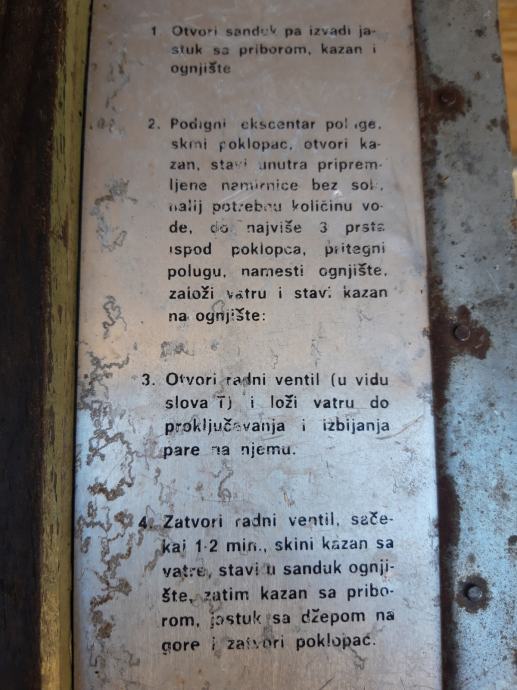 1 Otvori sanduk pa izvadi ja-
stuk sa priborom, kazan i
ognjište
2. Podigni ekscentar poluge,
skini poklopac, otvori ka-
zan, stavi unutra priprem-
ljene namirnice bez soli,
nalij potrebnu količinu vo-
de, do najviše 3 prsta
ispod poklopca, pritegni
polugu, namesti ognjište,
založi vatru i stavi kazan
na ognjište:
3. Otvori radni ventil (u vidu
slova T) i loži vatru do
proključavanja i izbijanja
pare na njemu.
4. Zatvori radni ventil, sače-
kaj 1-2 min., skini kazan sa
vatre, stavi u sanduk ognji-
šte, zatim kazan sa pribo-
rom, jastuk sa džepom na
gore i zatvori poklopac.